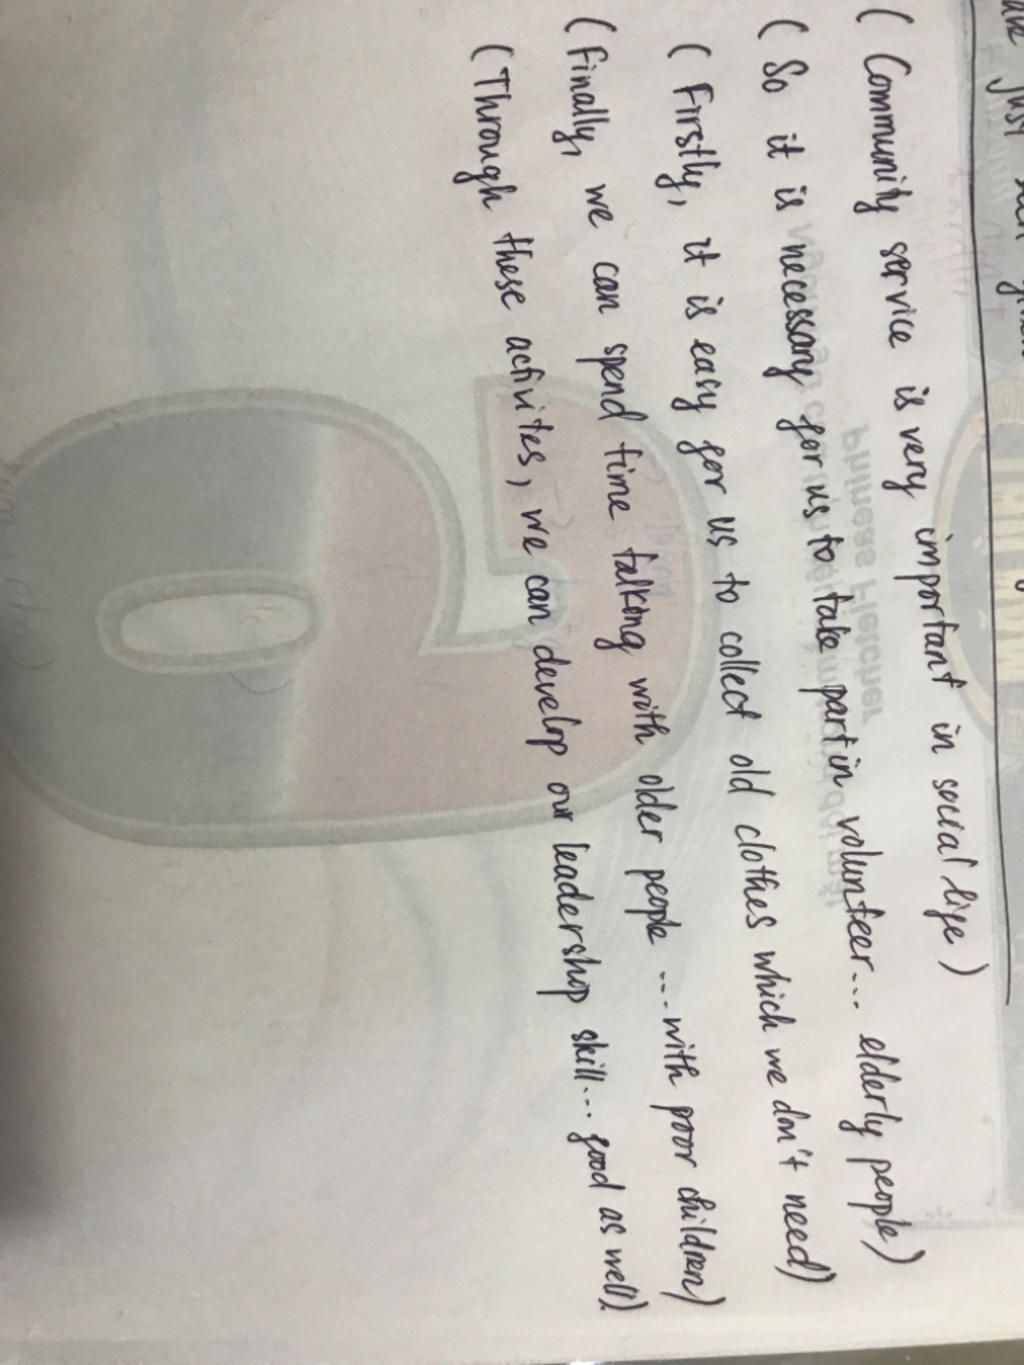 just
( Community service is very important in social life )
( So it is necessary for us to take part in volunteer... elderly people)
( Firstly, it is easy for us to collect old clothes which we don't need)
( Finally, we can spend time talking with older people ... with poor children)
(Through these activites, we can develop our leadershop skill... good as well).